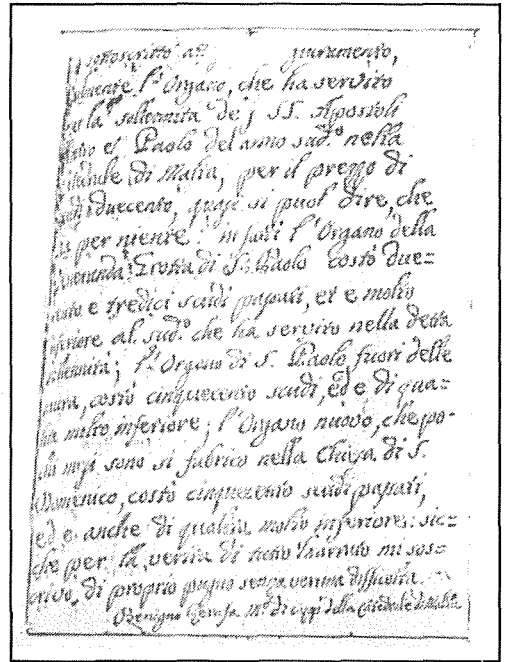 sottoscritto giuramento,
l'Organo, che ha servito
la solennita de' SS. Apostoli
et Paolo del anno sud.º nella
di Malta, per il prezzo di
duecento, quasi si puol dire, che
per niente: in fatti l'Organo della
Grotta di S. Paolo costò due=
cento e tredici scudi papali, et e molto
inferiore al sud.º che ha servito nella detta
solennità; l'Organo di S. Paolo fuori delle
mura, costò cinquecento scudi, ed e di qua=
molto inferiore; l'Organo nuovo, che po=
sono si fabricò nella Chiesa di S.
Domenico, costò cinquecento scudi papali,
ed e anche di qualità molto inferiore: sic=
che per la verità di tutto mi sos=
di proprio pugno senza veruna difficoltà.
Benigno M.º di Capp. della Catedrale di Malta